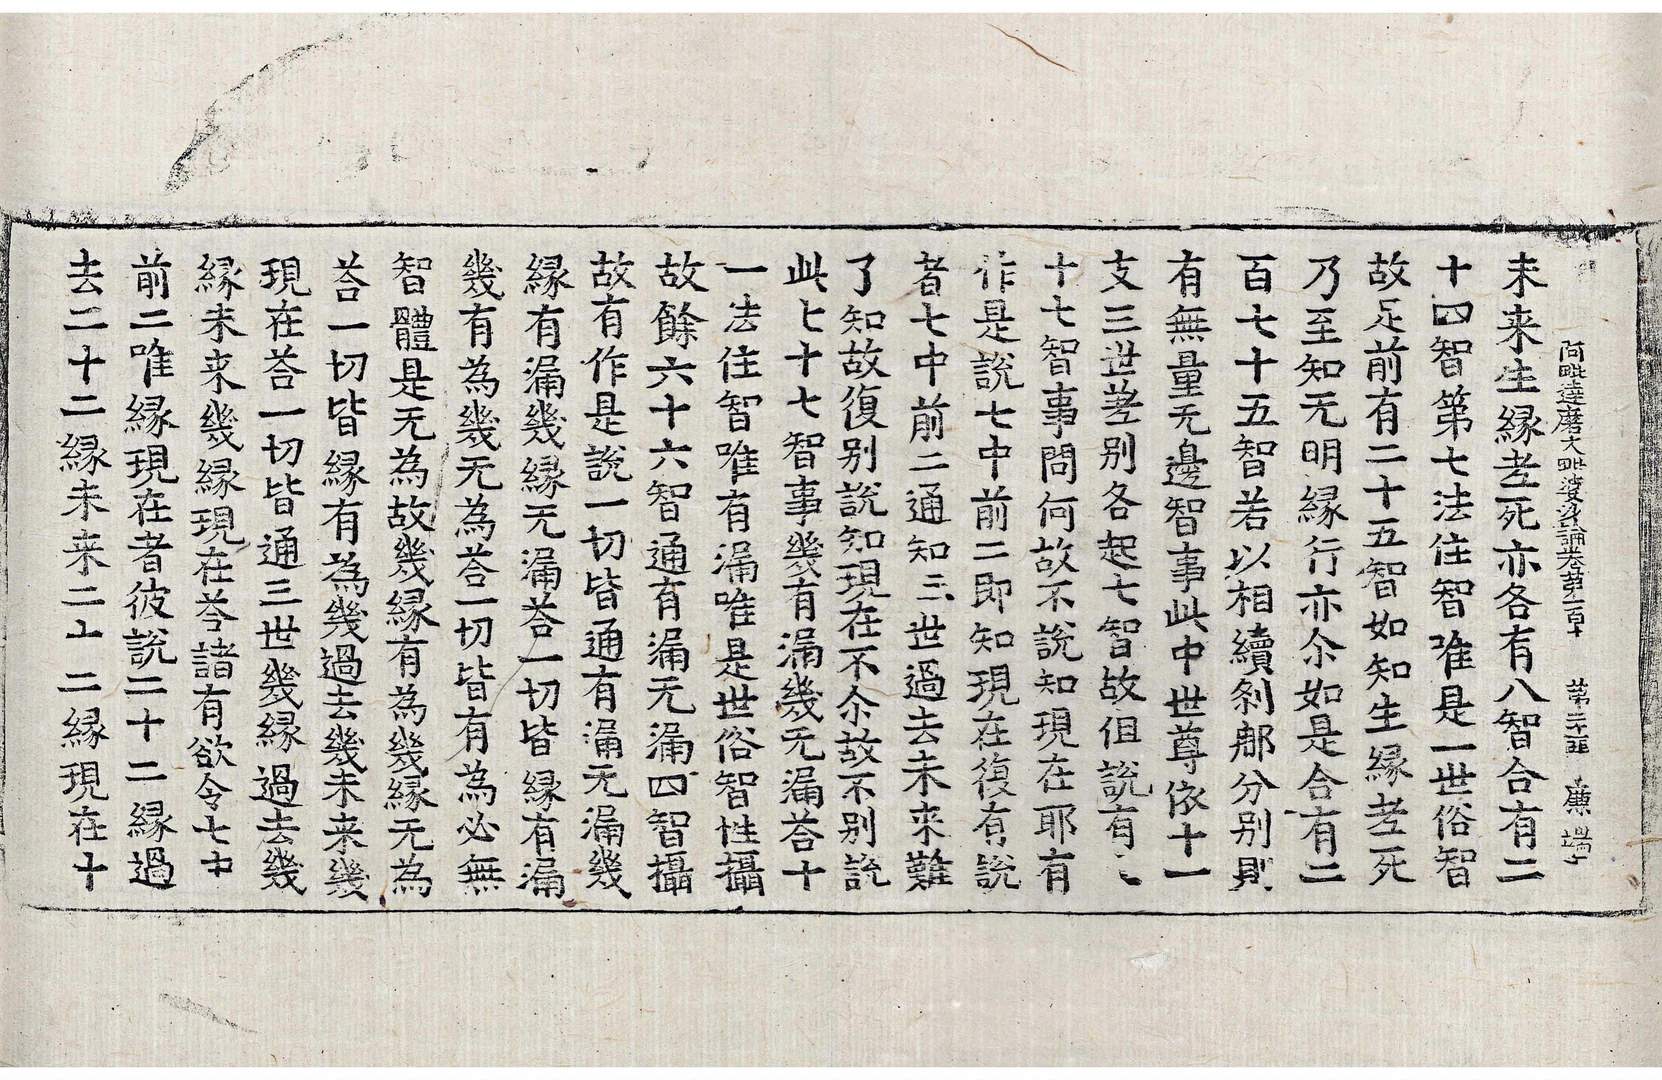 阿毗達磨大毗婆沙論卷第一百十 第二十四 廉
未来生緣老死亦各有八智合有二
十四智第七法住智唯是一世俗智
故足前有二十五智如知生緣老死
乃至知无明緣行亦尒如是合有二
百七十五智若以相續刹那分別則
有無量无邊智事此中世尊依十一
支三世差別各起七智故但說有七
十七智事問何故不說知現在耶有
作是說七中前二即知現在復有說
者七中前二通知三世過去未来難
了知故復別說知現在不尒故不別說
此七十七智事幾有漏幾无漏荅十
一法住智唯有漏唯是世俗智性攝
故餘六十六智通有漏无漏四智攝
故有作是說一切皆通有漏无漏幾
緣有漏幾緣无漏荅一切皆緣有漏
幾有為幾无為荅一切皆有為必無
智體是无為故幾緣有為幾緣无為
荅一切皆緣有為幾過去幾未来幾
現在荅一切皆通三世幾緣過去幾
緣未来幾緣現在荅諸有欲令七中
前二唯緣現在者彼說二十二緣過
去二十二緣未来二十二緣現在十